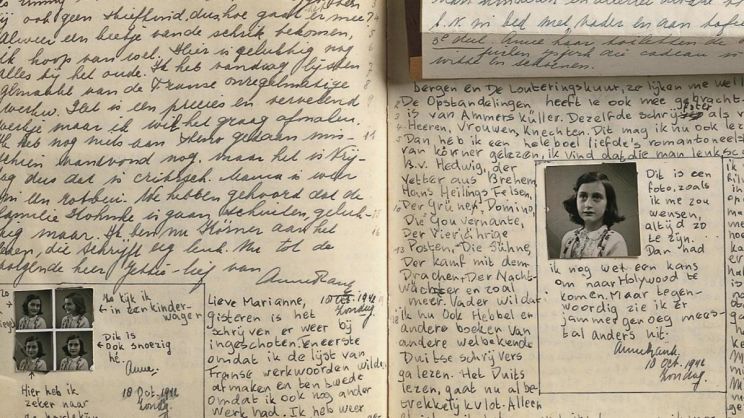 zij ook geen
Alweer een beetje van de schrik bekomen,
ik hoop van wel. Hier is gelukkig nog
alles bij het oude. Ik heb vandaag lijsten
gemaakt van de Franse onregelmatige
werkw. Het is een precies en vervelend
werkje maar ik wil het graag afmaken.
Ik heb nog niets aan steno gedaan mis-
schien vanavond nog. maar het is Vrij-
dag dus dat is critisch. Mama is weer
in een rotbui. We hebben gehoord dat de
familie
kig maar. Ik ben nu Körner aan het
lezen, die schrijft erg leuk. Nu tot de
volgende keer
Anne Frank
Nu kijk ik
← in een kinder-
wagen
Dit is
← ook snoezig
hé.
Anne.
Hier heb ik
zeker naar
18 Oct. 1942
Zondag.
18 Oct. 1942
Lieve Marianne, Zondag
Gisteren is het
schrijven er weer bij
ingeschoten. Eneerste
omdat ik de lijst van
Franse werkwoorden wilde
afmaken en ten twede
omdat ik ook nog ander
werk had. Ik heb weer
A.N. in bed met vader en aan
3e deel. Anne haar
bergen en De Louteringskuur, ze lijken me wel
De Opstandelingen heeft ie ook mee gebracht
is van Ammers Küller. Dezelfde schrijfster als v
Heeren, Vrouwen, Knechten. Dit mag ik nu ook lez
Dan heb ik een heleboel liefde's romantoneels
van Körner gelezen, ik vind dat die man leuk sch
B.v. Hedwig, der
Vetter aus Bremen,
Hans Heilings Felsen,
Der Grüner Domino,
Die Gouvernante,
Der Vierjährige
Posten, Die Sühne,
Der kamf mit dem
Drachen, Der Nacht-
wächter en zoal
meer. Vader wil dat
ik nu ook Hebbel en
andere boeken van
andere welbekende
Duitse schrijvers
ga lezen. Het Duits
lezen, gaat nu al be-
trekkelijk vlot. Alleen
Dit is een
foto, zoals
ik me zou
wensen,
altijd zo
te zijn.
Dan had
ik nog wel een kans
om naar Holywood te
komen. Maar tegen-
woordig zie ik er
jammer genoeg mees-
tal anders uit.
Annefrank.
18 Oct. 1942
Zondag.